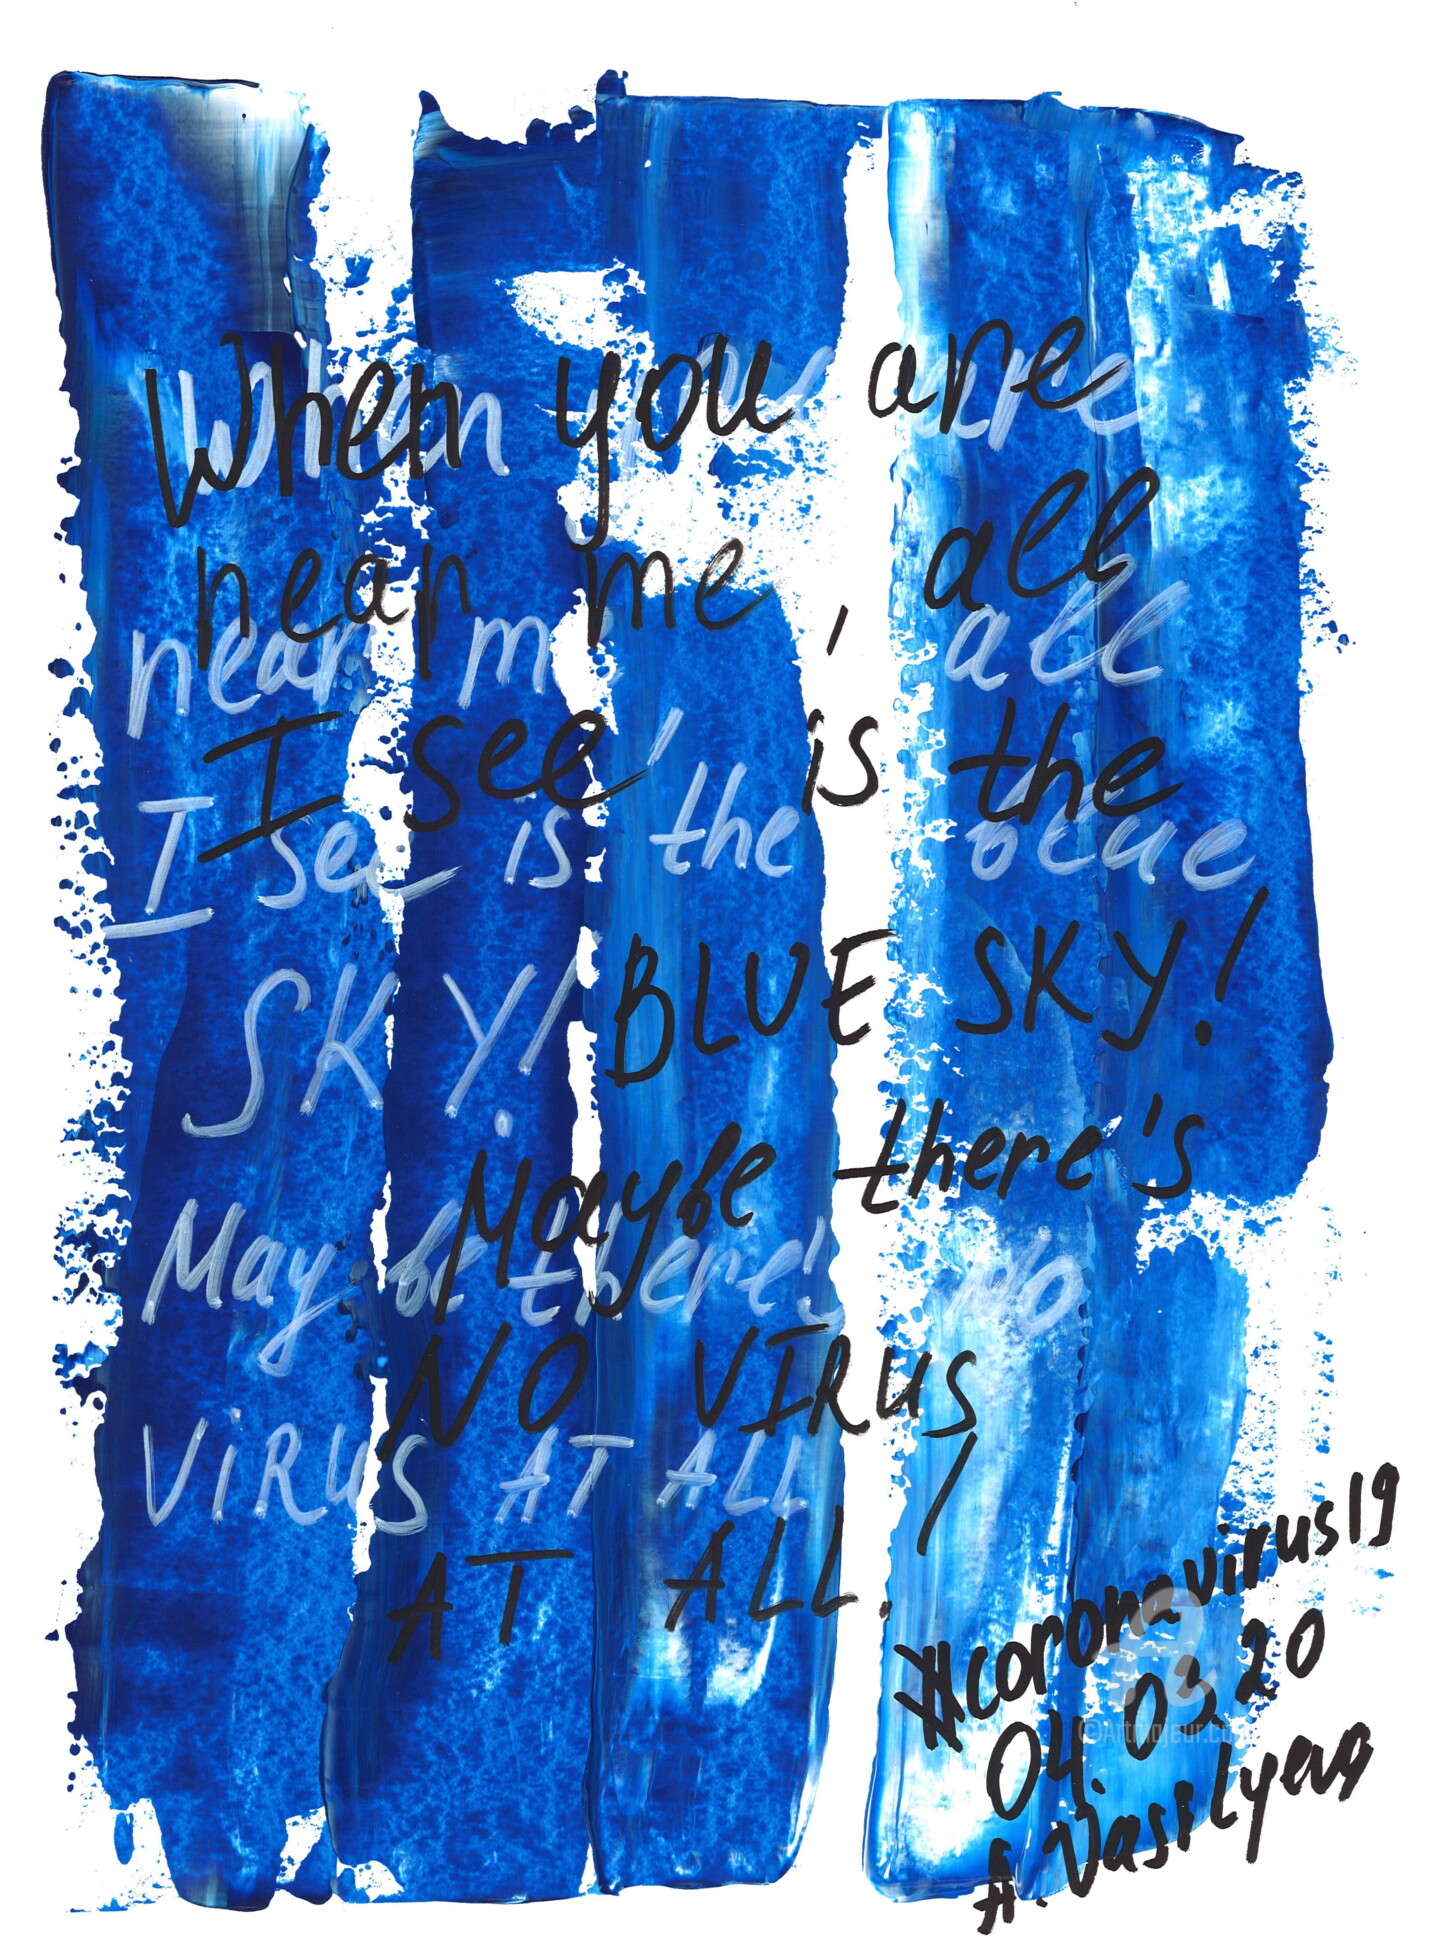 When you are
When you are
near me, all
near me all
I see is the
I see is the blue
BLUE SKY!
SKY!
Maybe there's
May be there's NO
NO VIRUS
VIRUS AT ALL
AT ALL.
#coronavirus19
04.03.20
A. Vasilyeva
©Artmajeur.com